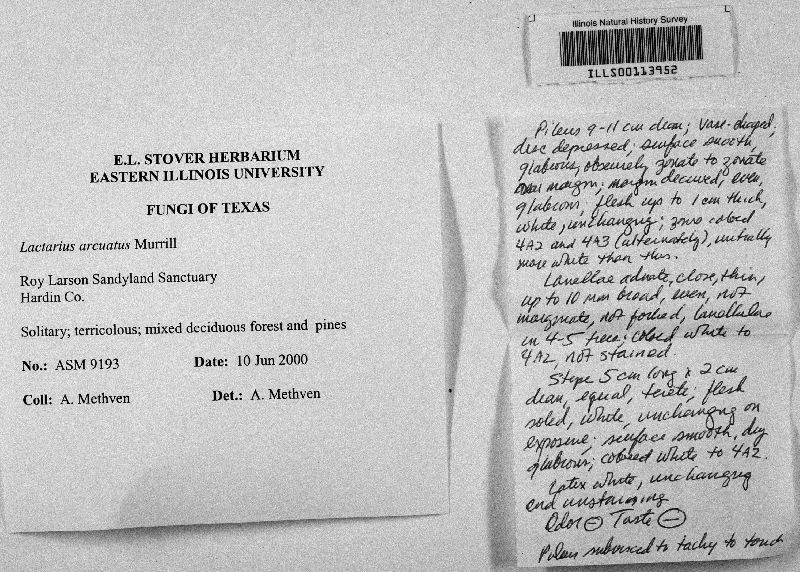 Illinois Natural History Survey
ILLS00113952
E.L. STOVER HERBARIUM
EASTERN ILLINOIS UNIVERSITY
FUNGI OF TEXAS
Lactarius arcuatus Murrill
Roy Larson Sandyland Sanctuary
Hardin Co.
Solitary; terricolous; mixed deciduous forest and pines
No.: ASM 9193 Date: 10 Jun 2000
Coll: A. Methven Det.: A. Methven
Pileus 9-11 cm diam; vase-shaped;
disc depressed; surface smooth,
glabrous, obscurely zonate to zonate
margin; margin decurved, even,
glabrous; flesh up to 1 cm thick,
white, unchanging; zones colored
4A2 and 4A3 (alternately), initially
more white than this.
Lamellae adnate, close, thin,
up to 10 mm broad, even, not
marginate, not forked, lamellulae
in 4-5 tiers; colored white to
4A2, not stained.
Stipe 5 cm long x 2 cm
diam, equal, terete; flesh
solid, white, unchanging on
exposure; surface smooth, dry
glabrous; colored white to 4A2.
Latex white, unchanging
and unstaining
Odor ⊖ Taste ⊖
Pileus subviscid to tacky to touch